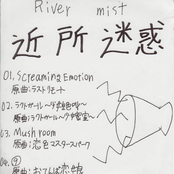 River mist
近所迷惑
01. Screaming Emotion
原曲:ラストリモート
02. ラクトガール
原曲:ラクトガール〜少女密室〜
03. Mushroom
原曲:恋色マスタースパーク
04. ⑨
原曲:おてんば恋娘